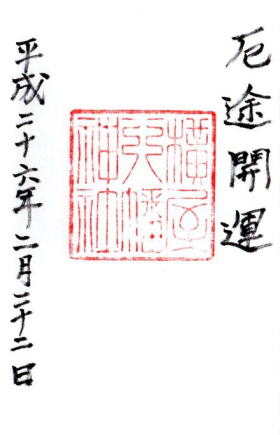 厄途開運
横屋
八幡
神社
平成二十六年二月二十二日